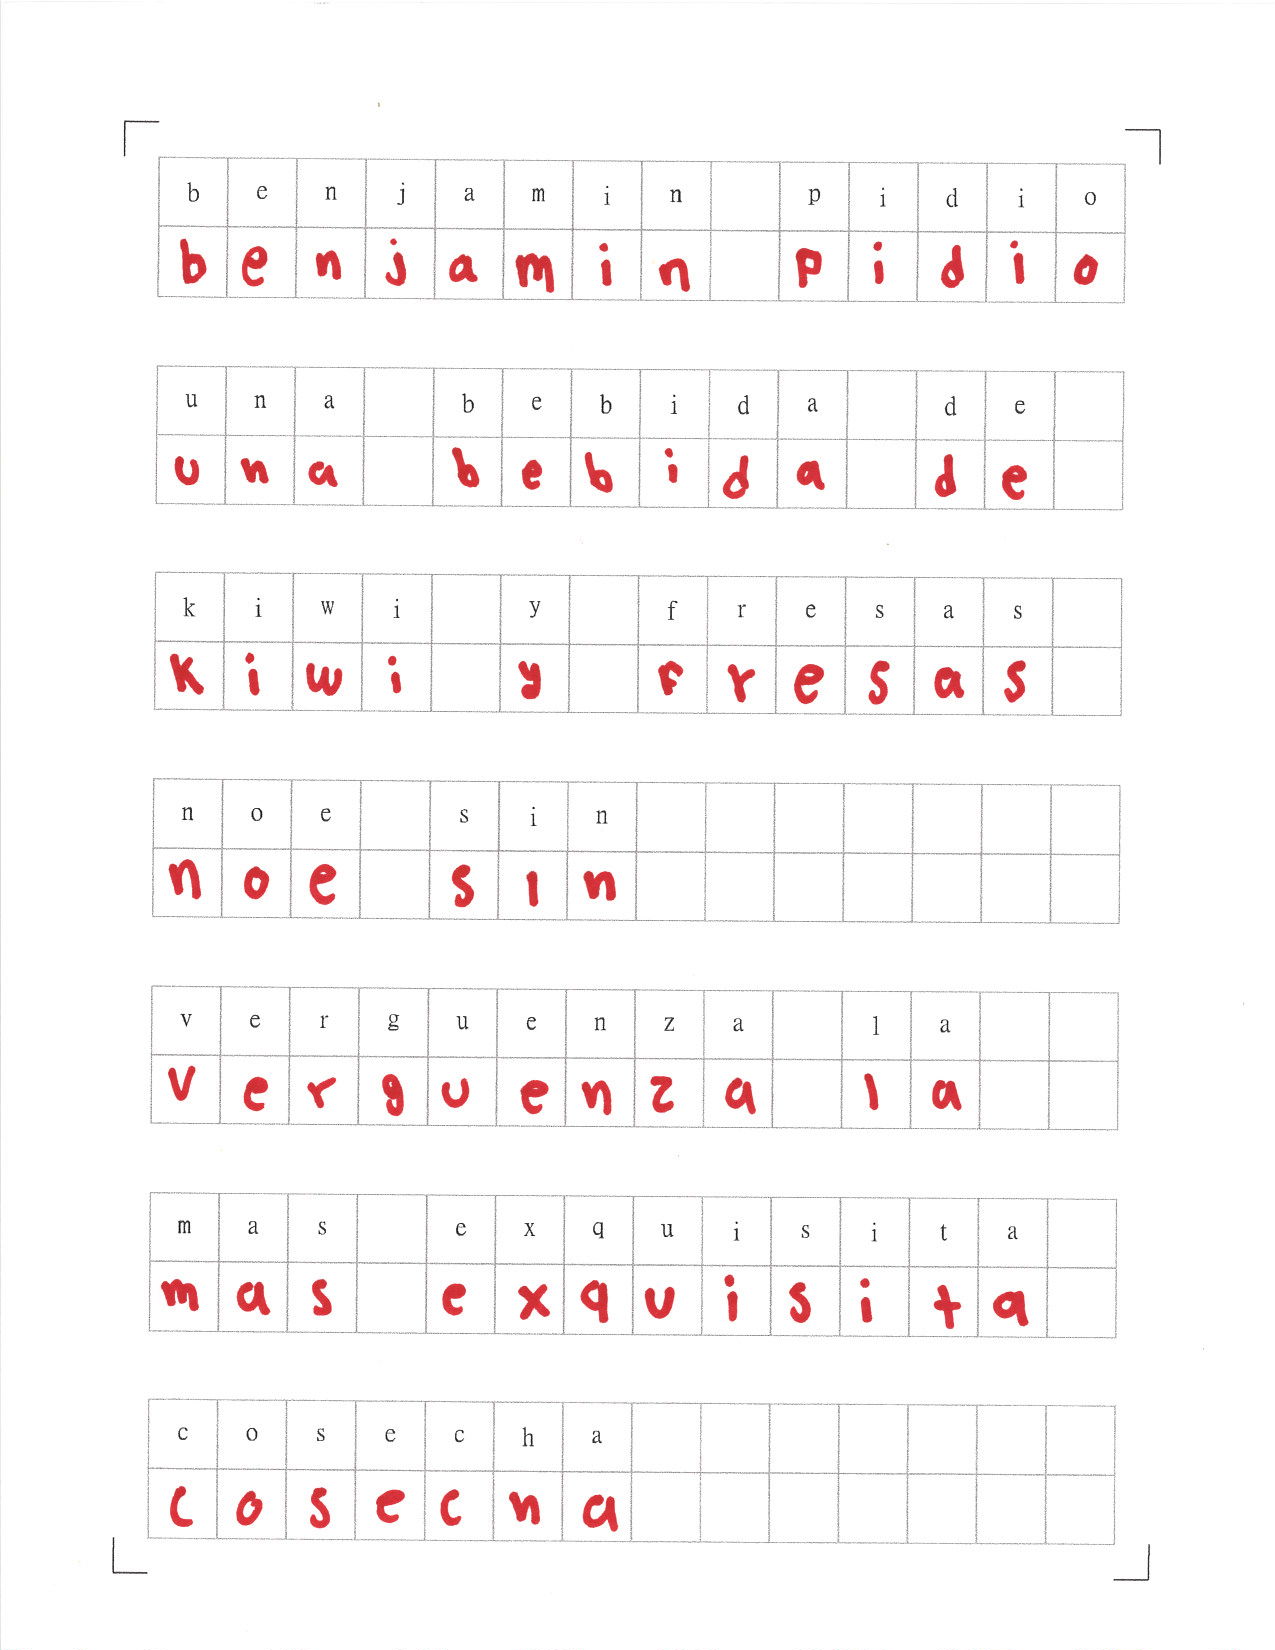 benjamin pidio
benjamin pidio
una bebida de
una bebida de
kiwi y fresas
kiwi y fresas
noe sin
noe sin
verguenza la
verguenza la
mas exquisita
mas exquisita
cosecha
cosecna